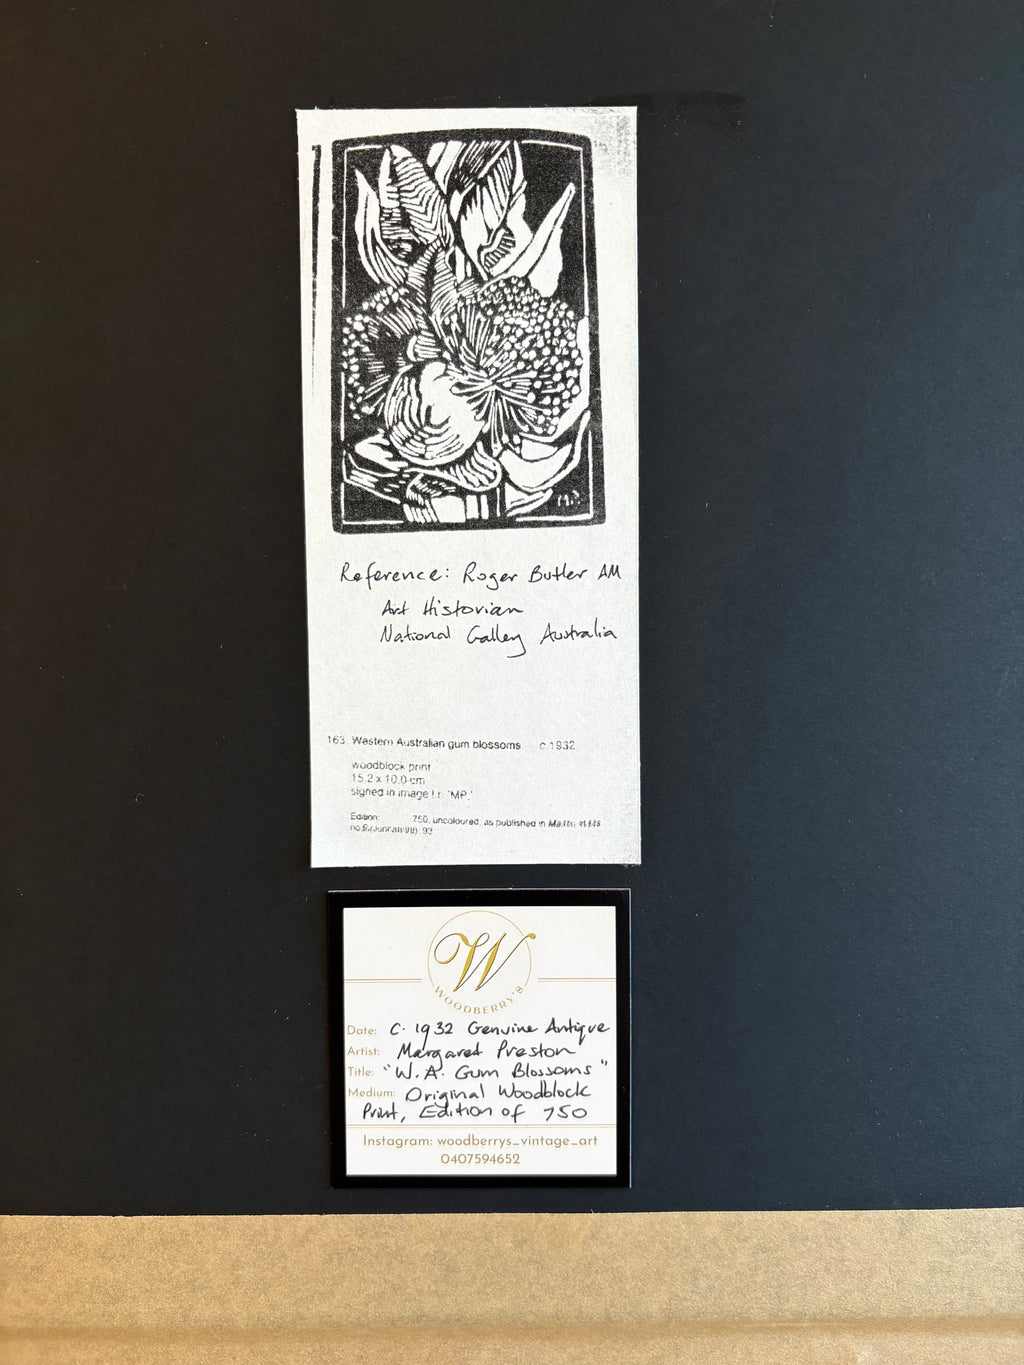 MP
Reference: Roger Butler AM
Art Historian
National Gallery Australia
163. Western Australian gum blossoms c.1932
woodblock print
15.2 x 10.0 cm
signed in image l.r. 'MP.'
Edition: 750, uncoloured, as published in
93
W
WOODBERRY'S
Date: C. 1932 Genuine Antique
Artist: Margaret Preston
Title: "W.A. Gum Blossoms"
Medium: Original Woodblock
Print, Edition of 750
Instagram: woodberrys_vintage_art
0407594652